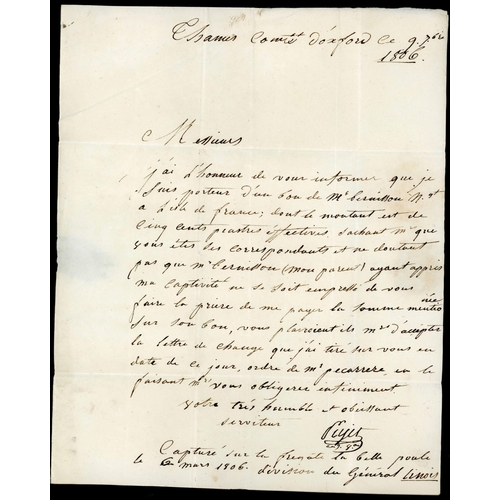 Thames Comté d'oxford ce 9. 7bre
1806.
Messieurs
j'ai l'honneur de vous informer que je
suis porteur d'un bon de Mr Cernisson N.gt
a L'ile de france; dont le montant est de
Cinq cents piastres effectives. sachant mrs que
vous êtes ses correspondants et ne doutant
pas que mr Cernisson (mon parent) ayant appris
ma captivité ne se soit empressé de vous
faire la prière de me payer la somme mentionnée
sur son bon, vous plairoient ils mrs d'accepter
la lettre de change que j'ai tiré sur vous en
date de ce jour, ordre de mr pecarrere, en le
faisant mrs vous obligerez infiniment.
votre très humble et obéissant
serviteur
Capturé sur la fregate la belle poule
le mars 1806. division du Général Linois